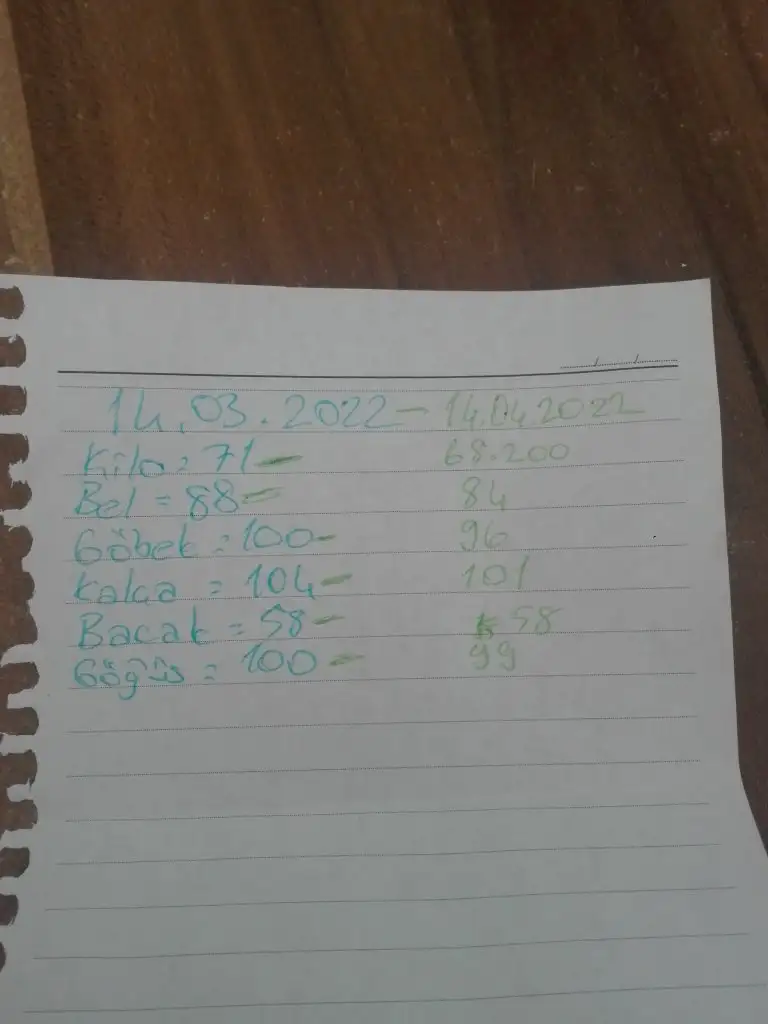 14.03.2022 - 14.04.2022
Kilo = 71 - 68.200
Bel = 88 - 84
Göbek = 100 - 96
Kalça = 104 - 101
Bacak = 58 - 58
Göğüs = 100 - 99